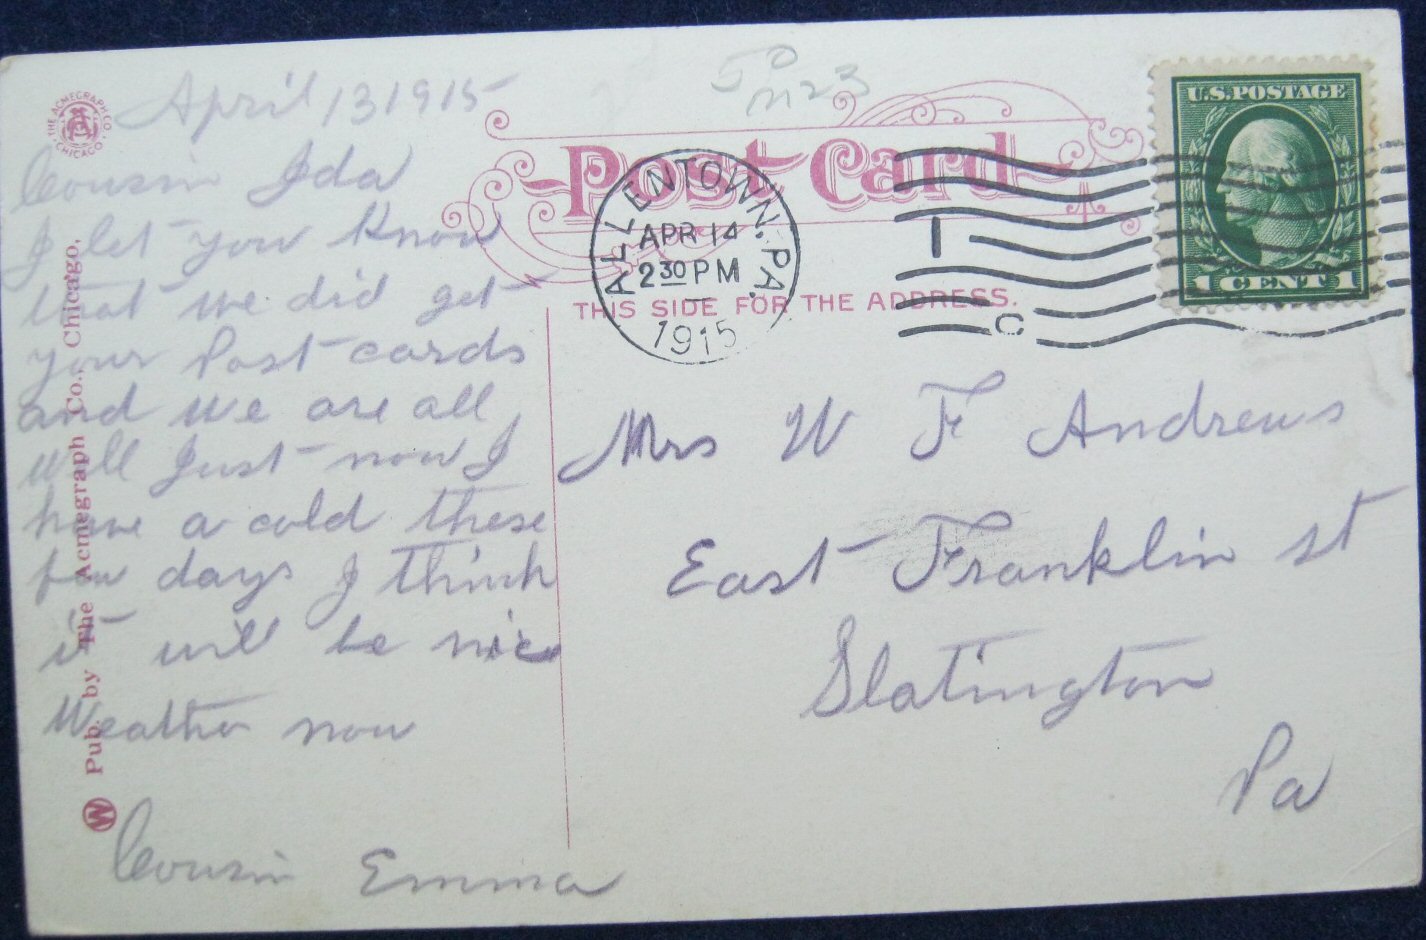 April 13 1915
Cousin Ida
I let you know
that we did get
your Post cards
and we are all
well Just now I
have a cold these
few days I think
it will be nice
Weather now
Cousin Emma
THE ACMEGRAPH CO.
CHICAGO
Pub. by The Acmegraph Co., Chicago,
W
50
m23
Post Card
THIS SIDE FOR THE ADDRESS.
ALLENTOWN. PA.
APR 14
2 30 PM
1915
1
C
U.S. POSTAGE
1 CENT 1
Mrs W F Andrews
East Franklin st
Slatington
Pa